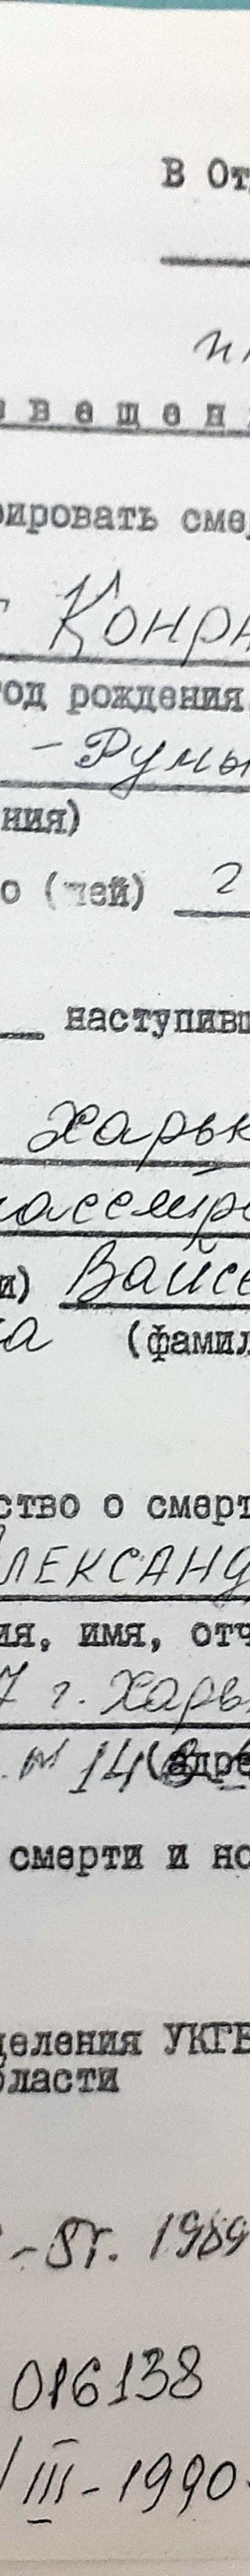 В От
и
звещен
рировать сме
Конра
год рождения
- Румы
ния)
о (чей) 2
наступивш
Харьк
расстре
и) Вайсе
ка (фамил
ство о смерт
ЛЕКСАНД
ия, имя, отч
7 г. Харь
14 (адре
смерти и но
деления УКГБ
бласти
-5г. 1989
016138
/III-1990